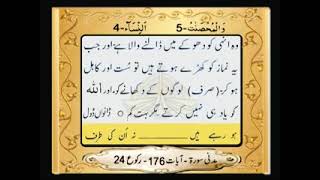 وَالْمُحْصَنٰتُ-5 اَلنِّسَآء-4
وہ انہی کو دھوکے میں ڈالنے والا ہے اور جب
یہ نماز کو کھڑے ہوتے ہیں تو سُست اور کاہل
ہو کر (صرف) لوگوں کے دکھانے کو، اور اللہ
کو یاد ہی نہیں کرتے مگر بہت کم ○ ڈانواں ڈول
ہو رہے ہیں نہ اُن کی طرف
مدنی سورۃ - آیات 176 - رکوع 24